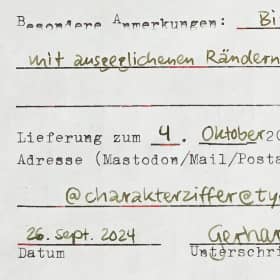 Besondere Anmerkungen: Bi
mit ausgeglichenen Rändern
Lieferung zum 4. Oktober 20
Adresse (Mastodon/Mail/Posta
@charakterziffer@ty
26. Sept. 2024 Gerhar
Datum Unterschri